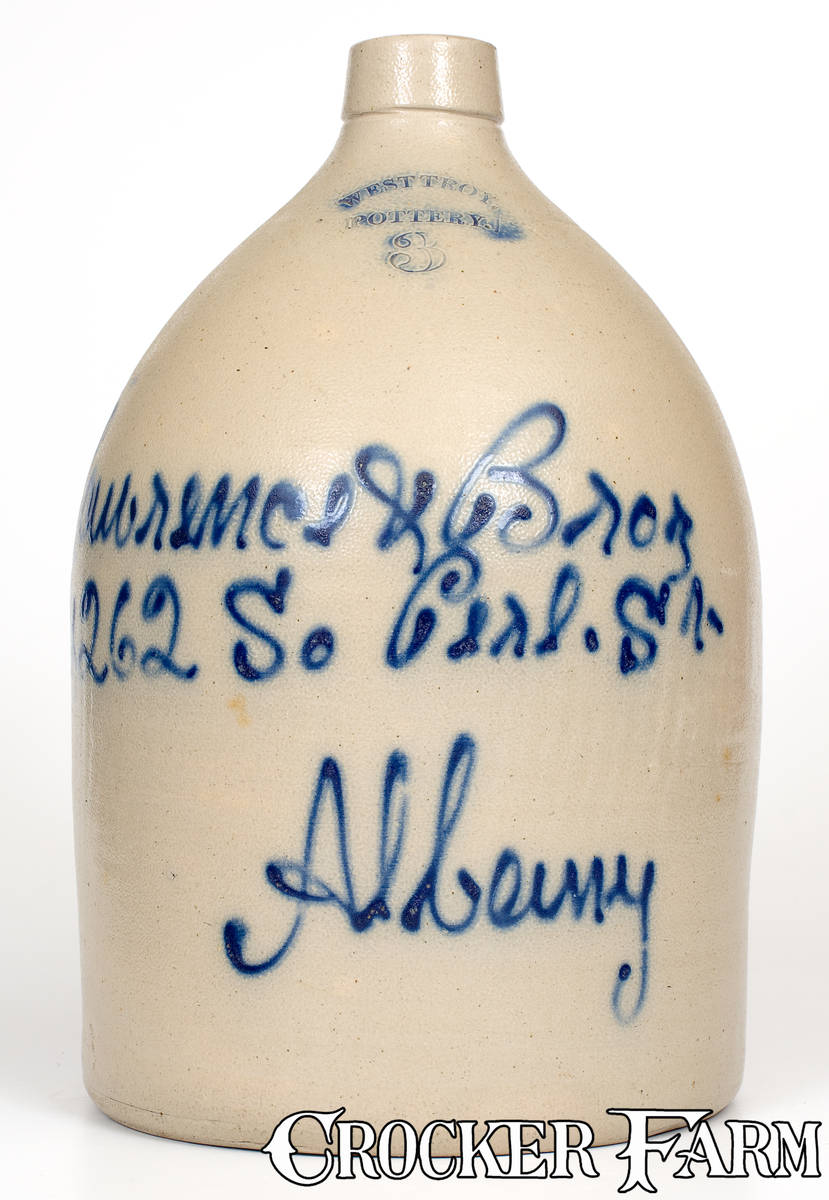 WEST TROY
POTTERY
3
Lawrence & Broz
262 So Perl. St.
Albany
CROCKER FARM